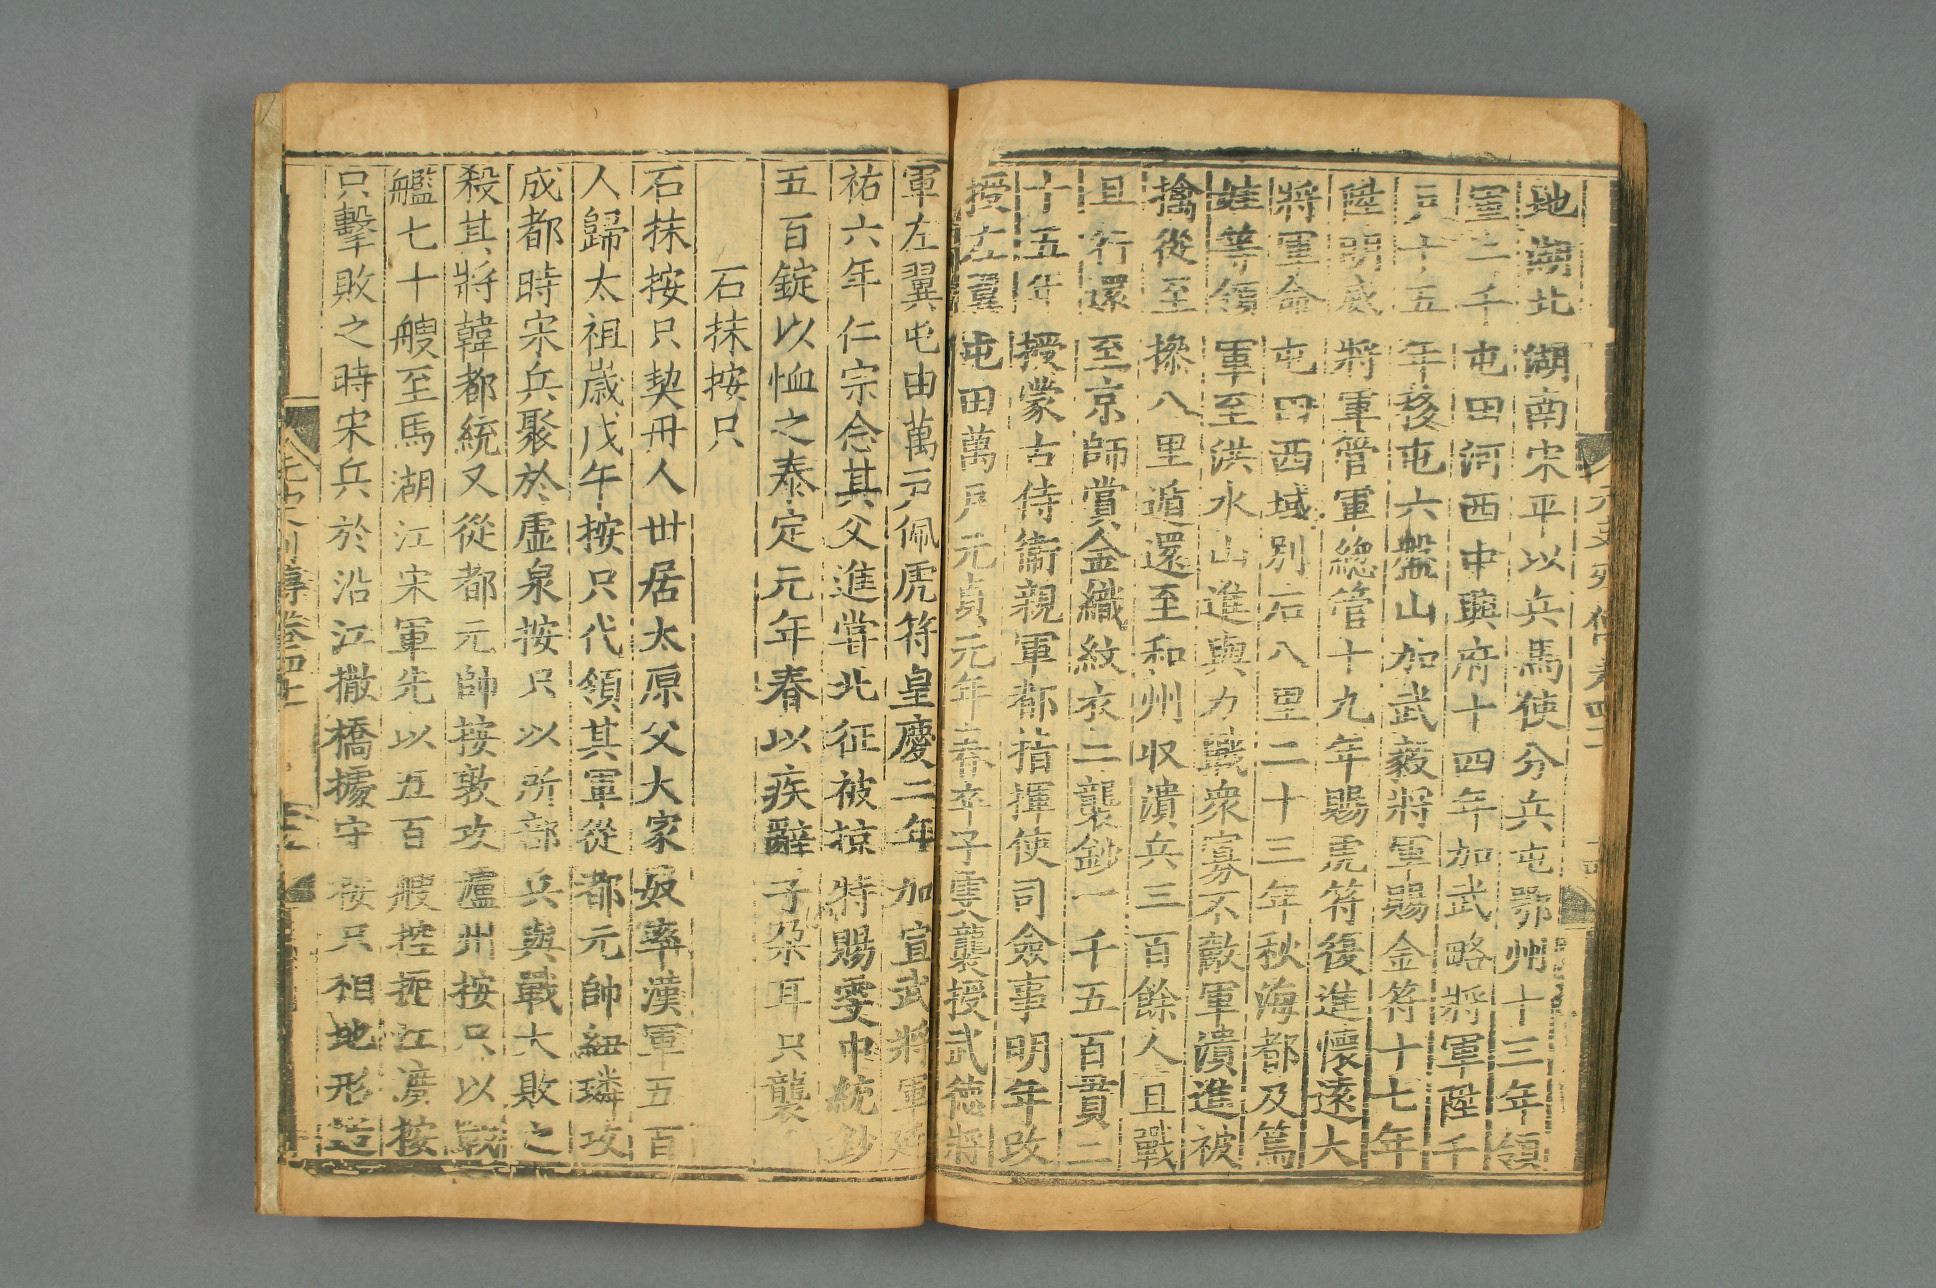 地湖北湖南宋平以兵馬使分兵屯鄂州十三年領
軍二千屯田河西中興府十四年加武略將軍陞千
戶十五年移屯六盤山加武毅將軍賜金符十七年
陞明威將軍管軍總管十九年賜虎符復進懷遠大
將軍命屯田西域別石八里二十三年秋海都及篤
娃等領軍至洪水山進與力戰衆寡不敵軍潰進被
擒從至摻八里遁還至和州収潰兵三百餘人且戰
且行還至京師賞金織紋衣二襲鈔一千五百貫二
十五年授蒙古侍衞親軍都指揮使司僉事明年改
授左翼屯田萬戶元貞元年春卒子雲襲授武德將
軍左翼屯田萬戶佩虎符皇慶二年加宣武將軍延
祐六年仁宗念其父進嘗北征被掠特賜雯中統鈔
五百錠以恤之泰定元年春以疾辭子朶耳只襲
石抹按只
石抹按只契丹人世居太原父大家奴率漢軍五百
人歸太祖歲戊午按只代領其軍從都元帥紐璘攻
成都時宋兵聚於虛泉按只以所部兵與戰大敗之
殺其將韓都統又從都元帥按敦攻瀘州按只以戰
艦七十艘至馬湖江宋軍先以五百艘控扼江渡按
只擊敗之時宋兵於沿江撤橋據守按只相地形造